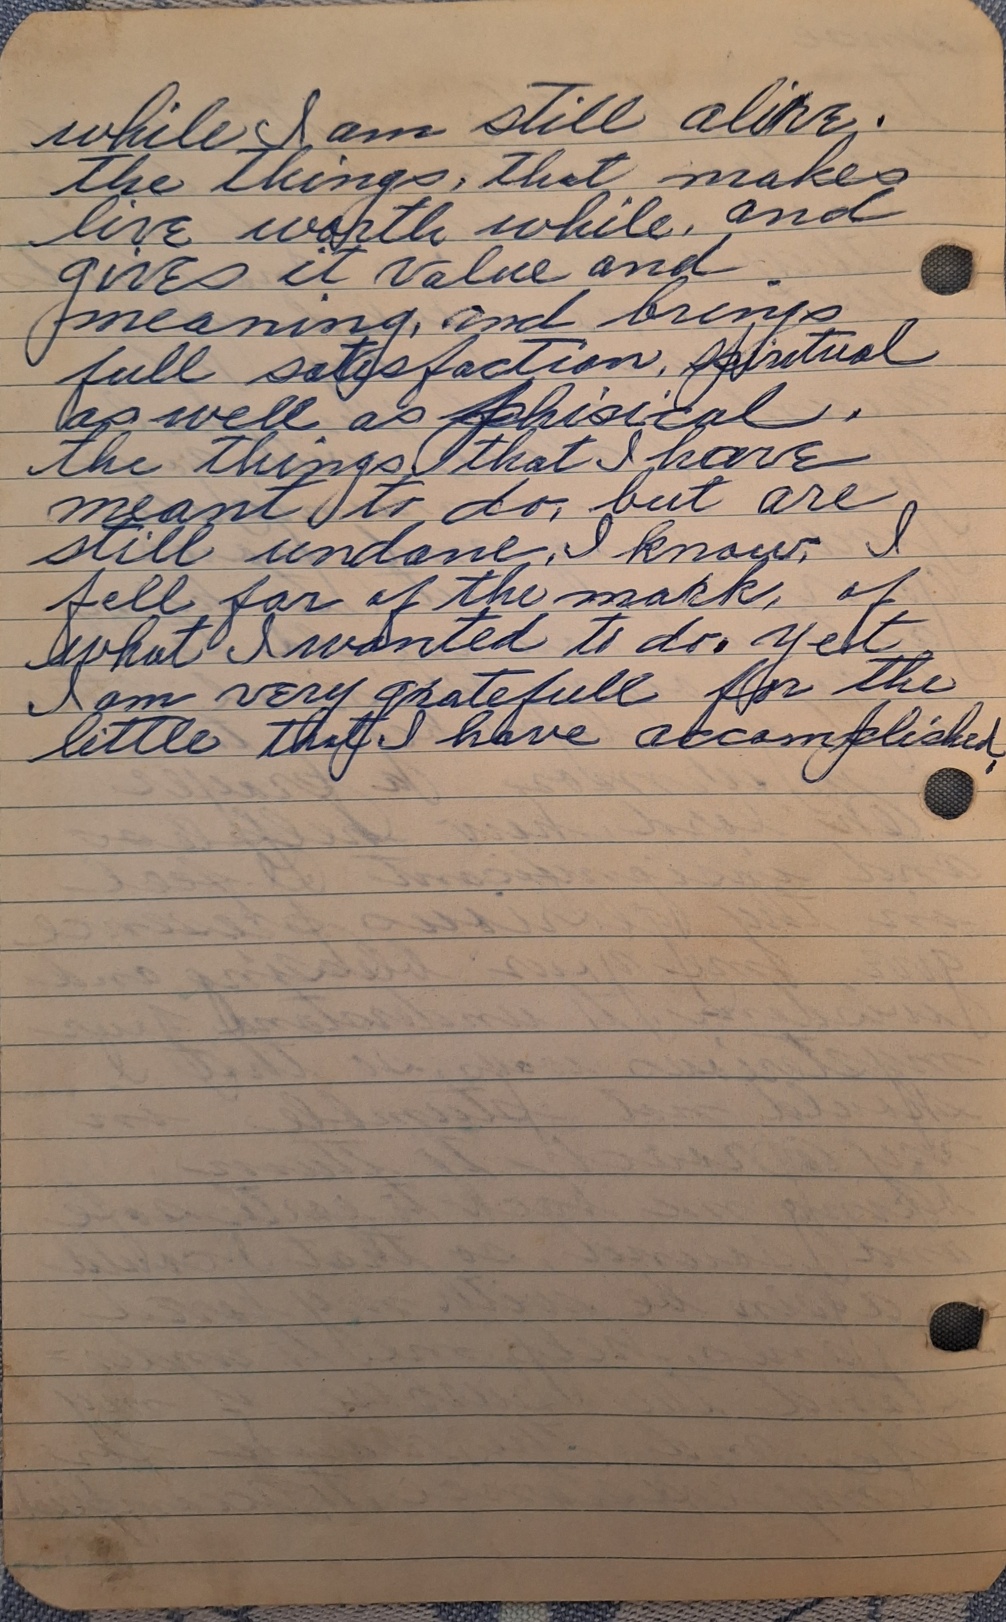 while I am still alive.
the things, that makes
live worth while, and
gives it value and
meaning, and brings
full satisfaction, spiritual
as well as phisical.
the things that I have
meant to do, but are
still undone, I know, I
fell far of the mark, of
what I wanted to do. yet
I am very gratefull for the
little that I have accomplished,